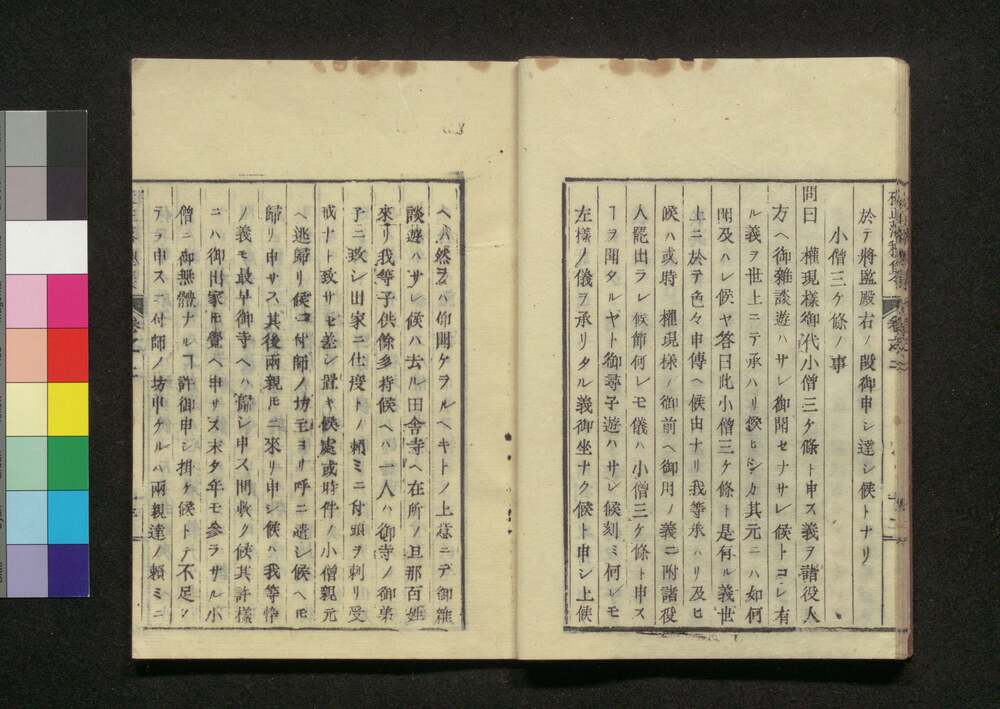 於テ將監殿右ノ段御申シ達シ候トナリ
小僧三ケ條ノ事
問曰 權現樣御代小僧三ケ條ト申ス義ヲ諸役人
方ヘ御雜談遊ハサレ御聞セナサレ候トコレ有
ル義ヲ世上ニテ承ハリ候ヒシカ其元ニハ如何
聞及ハレ候ヤ答曰此小僧三ケ條ト是何ル義世
上ニ於テ色々申傳ヘ候由ナリ我等承ハリ及ヒ
候ハ或時 權現樣ノ御前ヘ御用ノ義ニ附諸役
人罷出ラレ候節何レモ儀ハ小僧三ケ條ト申ス
ヿヲ聞タルヤト御尋子遊ハサレ候刻ミ何レモ
左樣ノ儀ヲ承リタル義御坐ナク候ト申シ上候
ヘハ然ラハ仰聞ケヲルヘキトノ上意ニテ御雜
談遊ハサレ候ハ去ル田舍寺ヘ在所ノ旦那百姓
來リ我等子供餘多持候ヘハ一人ハ御寺ノ御弟
子ニ致シ出家ニ仕度トノ賴ミニ付頭ヲ剃リ受
戒ナト致サセ差シ置キ候處或時件ノ小僧親元
ヘ逃歸リ候ニ付師ノ坊主ヨリ呼ニ遣シ候ヘモ
歸リ申サス其後兩親モニ來リ申シ候ハ我等悴
ノ義モ最早御寺ヘハ歸シ申ス間敷ク候其許樣
ニハ御出家モ覺ヘ申サス末タ年モ參ラサル小
僧ニ御無體ナルヿ許御申シ掛ケ候トテ不足ノ
テヲ申スニ付師ノ坊申ケルハ兩親達ノ賴ミニ